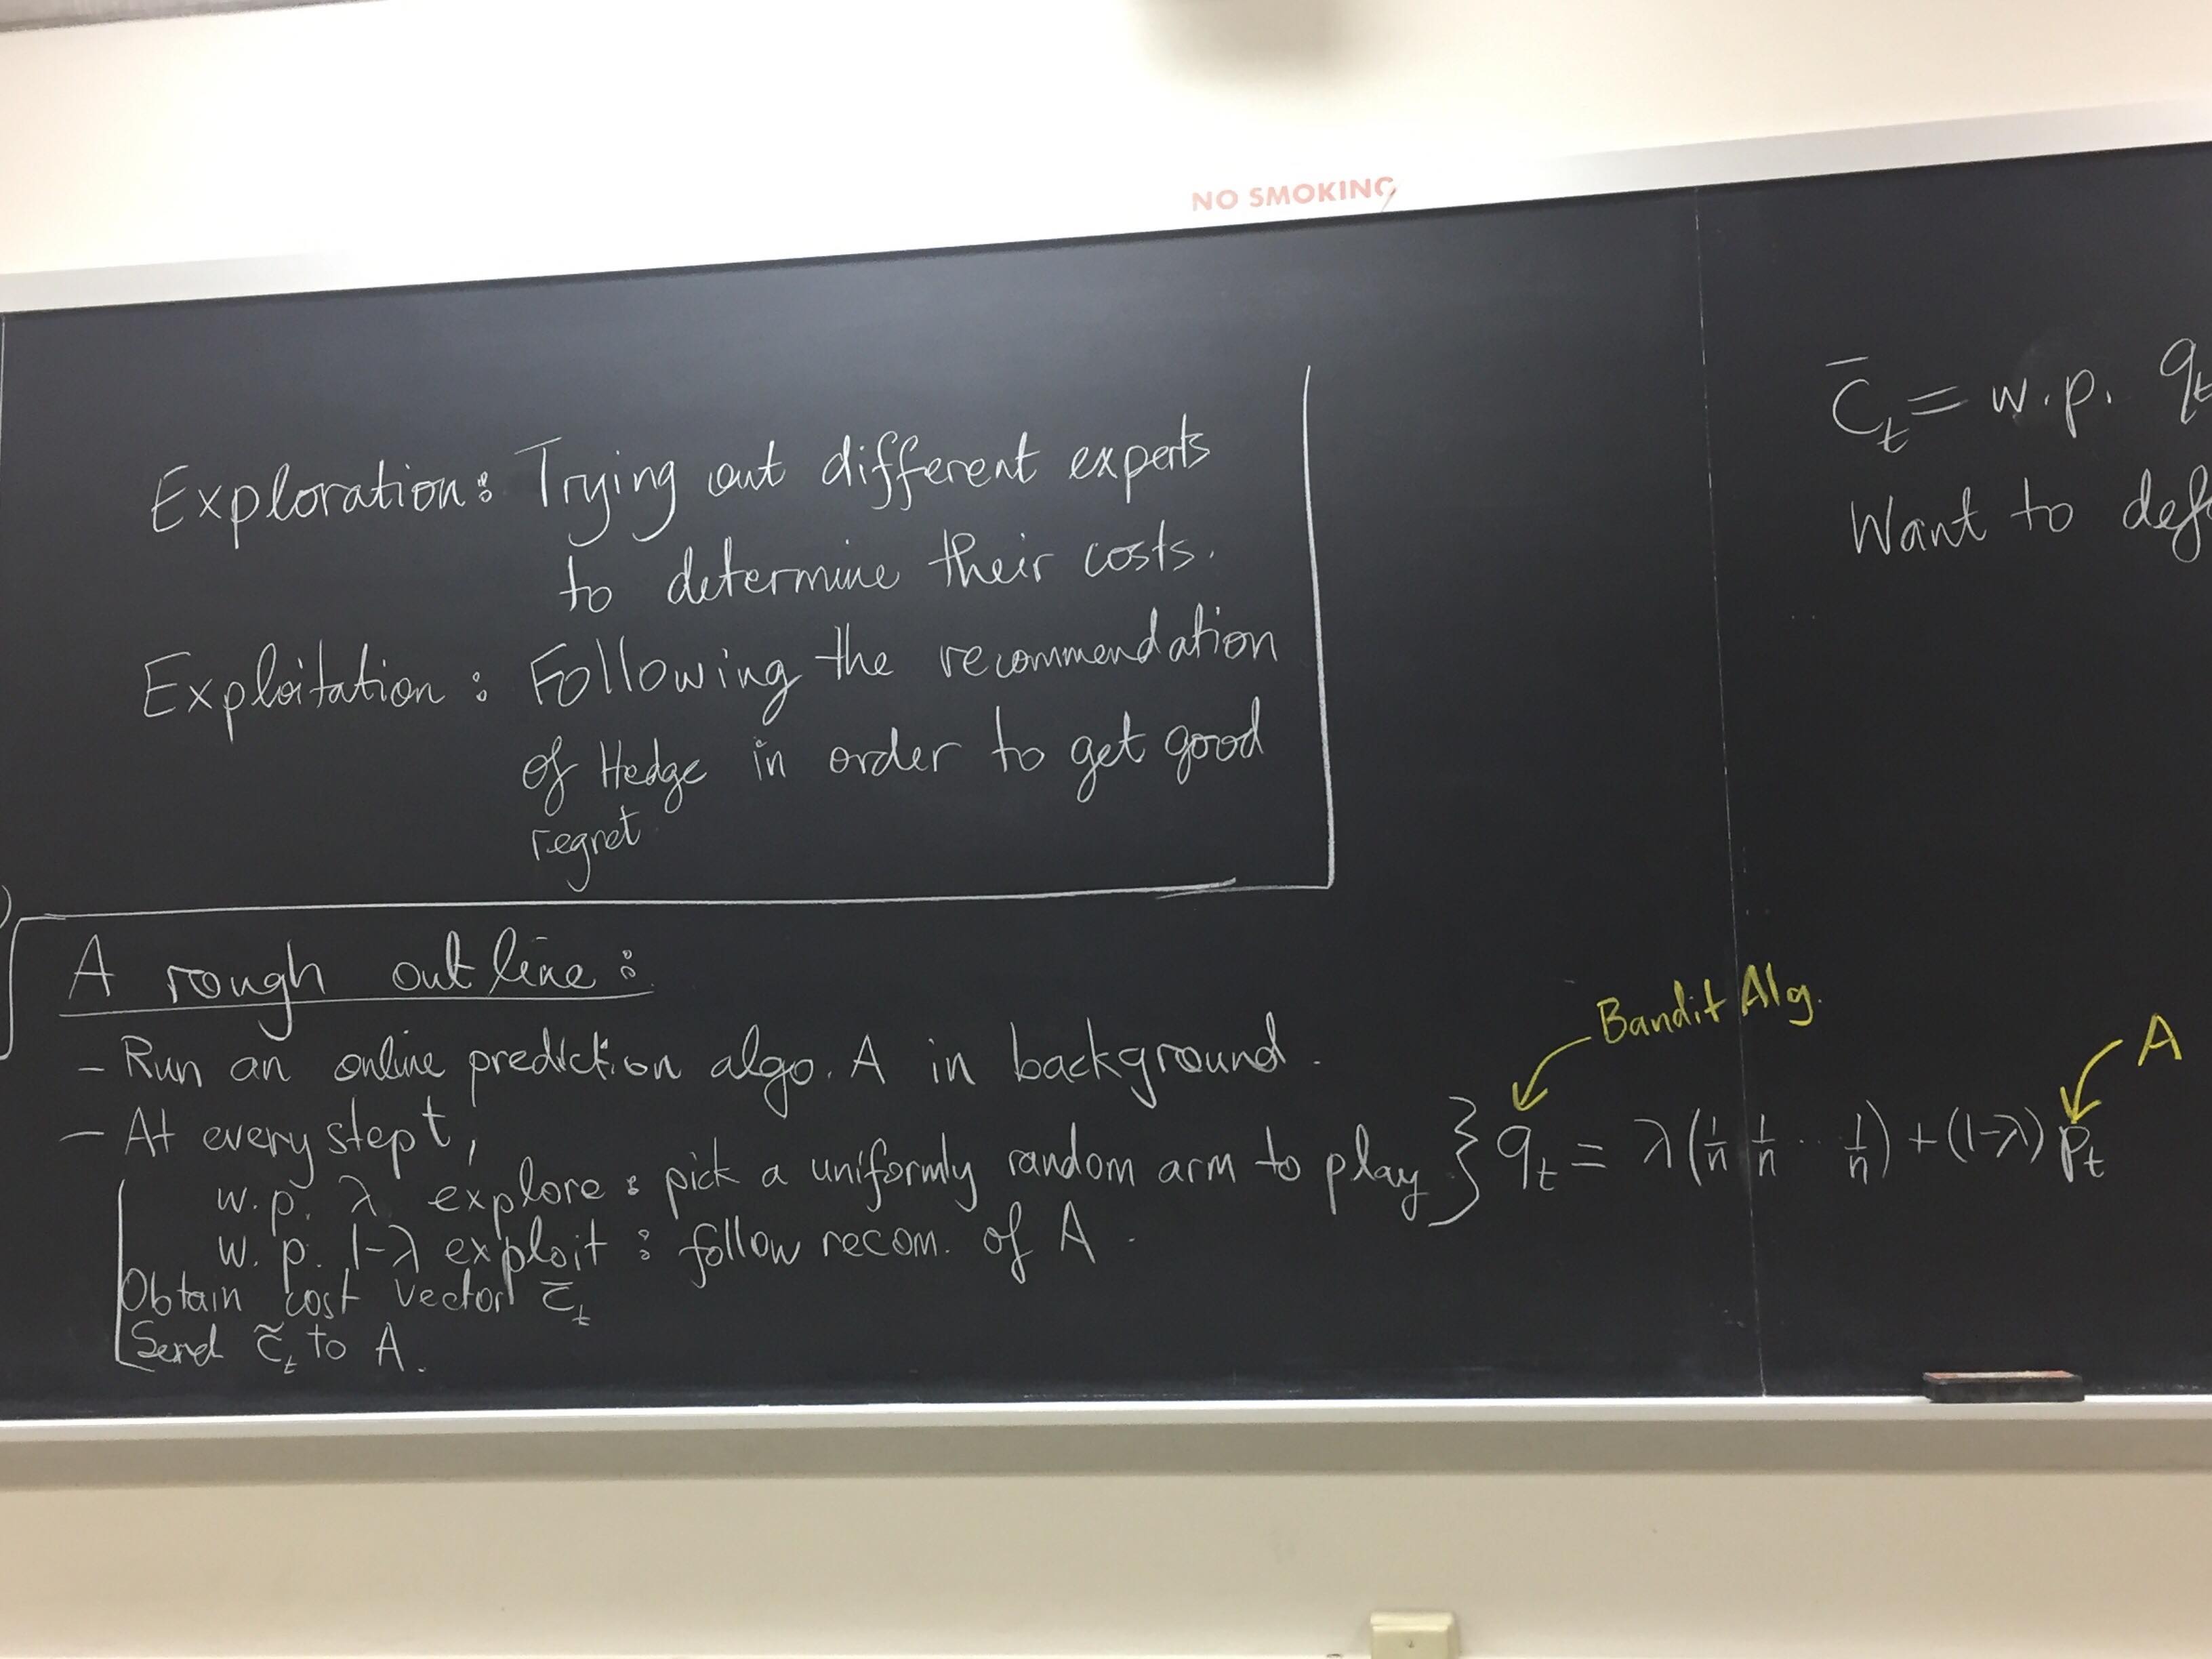 NO SMOKING
Exploration: Trying out different experts
to determine their costs.
Exploitation: Following the recommendation
of Hedge in order to get good
regret
A rough outline:
- Run an online prediction algo. A in background.
- At every step t,
w.p. λ explore: pick a uniformly random arm to play
w.p. 1-λ exploit: follow recom. of A.
Obtain cost vector c̄_t
Send c̃_t to A.
Bandit Alg.
A
q_t = λ(1/n 1/n ... 1/n) + (1-λ) p_t
c̄_t = w.p. q_t
Want to def